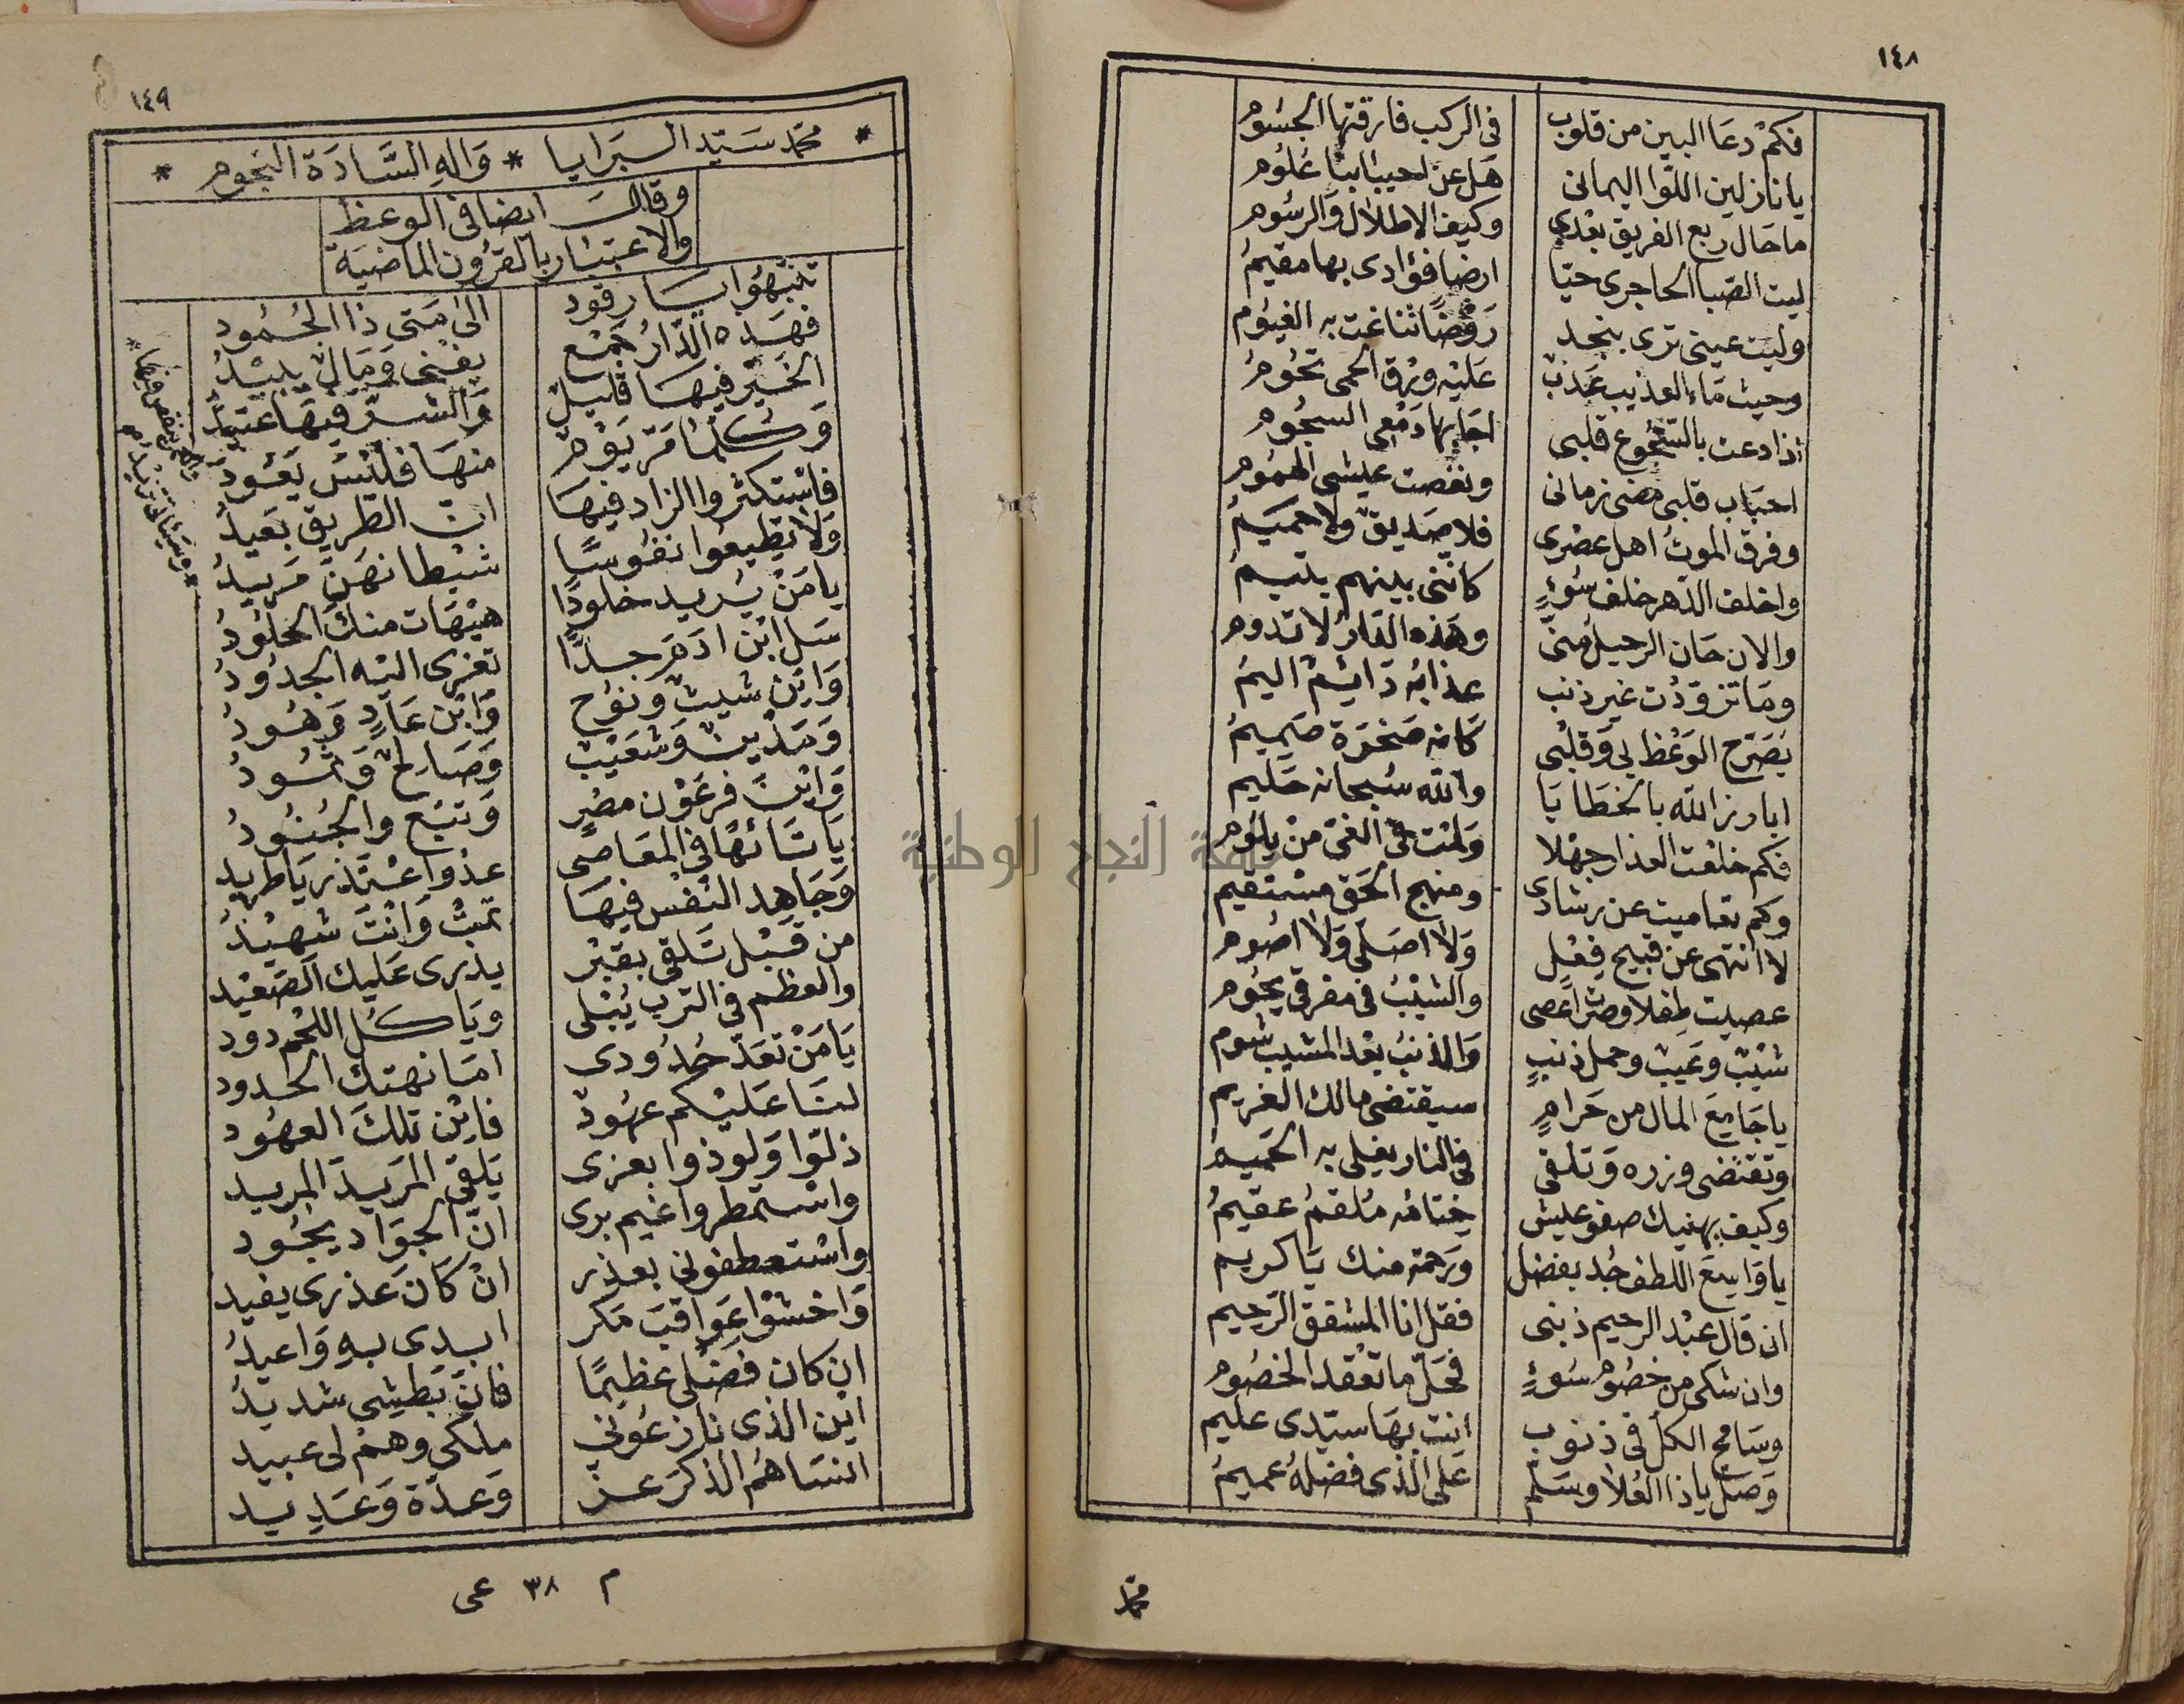 ١٤٨
فكم دعا البين من قلوب في الركب فارقتها الجسوم
يا نازلين اللوا اليماني هل عن احيبابنا علوم
ما حال ربع الفريق بعدي وكيف الاطلال والرسوم
ليت الصبا الحاجري حيّا ارضا فؤادي بها مقيمُ
وليت عيني ترى بنجد روضًا تناغت به الغيوم
وحيث ماء العذيب عَذبٌ عليه ورق الحمى تحومُ
اذا دعت بالسجوع قلبي اجابها دمعي السجوم
احباب قلبي مضى زماني ونغصت عيشي الهموم
وفرق الموت اهل عصري فلا صديق ولا حميمُ
واخلف الدهر خلف سُوءٍ كانني بينهم يتيمُ
والان حان الرحيل منّي وهذه الدار لا تدوم
وما تزودت غير ذنب عذابه دائم اليمُ
يصرّح الوعظ بي وقلبي كانه صخرة صميمُ
ابارز الله بالخطايا والله سبحانه حليم
فكم خلعت العذار جهلا ولمت في الغي من يلوم
وكم تعاميت عن رشادي ومنهج الحق مستقيم
لا انتهي عن قبيح فعلٍ ولا اصلي ولا اصوم
عصيت طفلا وصرت اعصى والشيب في مفرقي يحوم
شيب وعيب وحمل ذنبٍ والذنب بعد المشيب شوم
يا جامع المال من حرامٍ سيقتضى مالك الغريم
وتقتضى وزره وتلقى في النار يغلي به الحميم
وكيف يهنيك صفو عيش ختامه ملقمُ عقيمُ
يا واسع اللطف جُد بفضل ورحمة منك يا كريم
ان قال عبد الرحيم ذنبي فقل انا المشفق الرحيم
وان شكى من خصوم سُوءٍ فحلّ ما تعقد الخصوم
وسامح الكل في ذنوب انت بها سيدي عليم
وصل يا ذا العُلا وسلم على الذي فضله عميمُ
محمد
١٤٩
* محمد سيد البرايا * واله السادة النجوم *
وقال ايضا في الوعظ
والاعتبار بالقرون الماضية
تنبهوا يا رقود الى متى ذا الجُمُود
فهذه الدار جمع يفنى ومال يبيدُ
الخير فيها قليل والشر فيها عتيدُ
وكلما مرّ يوم منها فليس يعود
فاستكثروا الزاد فيها ان الطريق بعيدُ
ولا تطيعوا نفوسًا شيطانهن مريدُ
يا من يريد خلودًا هيهات منك الخلودُ
سل ابن ادم جدًّا تعزى اليه الجدودُ
واين شيث ونوح وابن عاد وهودُ
ومدين وشعيب وصالح وثمودُ
واين فرعون مصرٍ وتبع والجنودُ
يا تائها في المعاصي عذ واعتذر يا طريد
وجاهد النفس فيها تمت وانت شهيدُ
من قبل تلقى بقبر يذرى عليك الصعيد
والعظم في الترب يُبلى وياكل اللحم دود
يا من تعدّ حدودي اما نهتك الحدود
لنا عليكم عهود فاين تلك العهود
ذلوا ولوذوا بعزى يلقى المريد المريد
واستمطروا غيم برى ان الجواد يجود
واستعطفوني بعذر ان كان عذرى يفيد
واخشوا عواقب مكر ابدى به واعيدُ
ان كان فضلى عظيمًا فانّ بطشي شديدُ
اين الذى نازعوني ملكى وهم لي عبيد
انساهم الذكر عز وعدّة وعديد
م ٣٨ عى